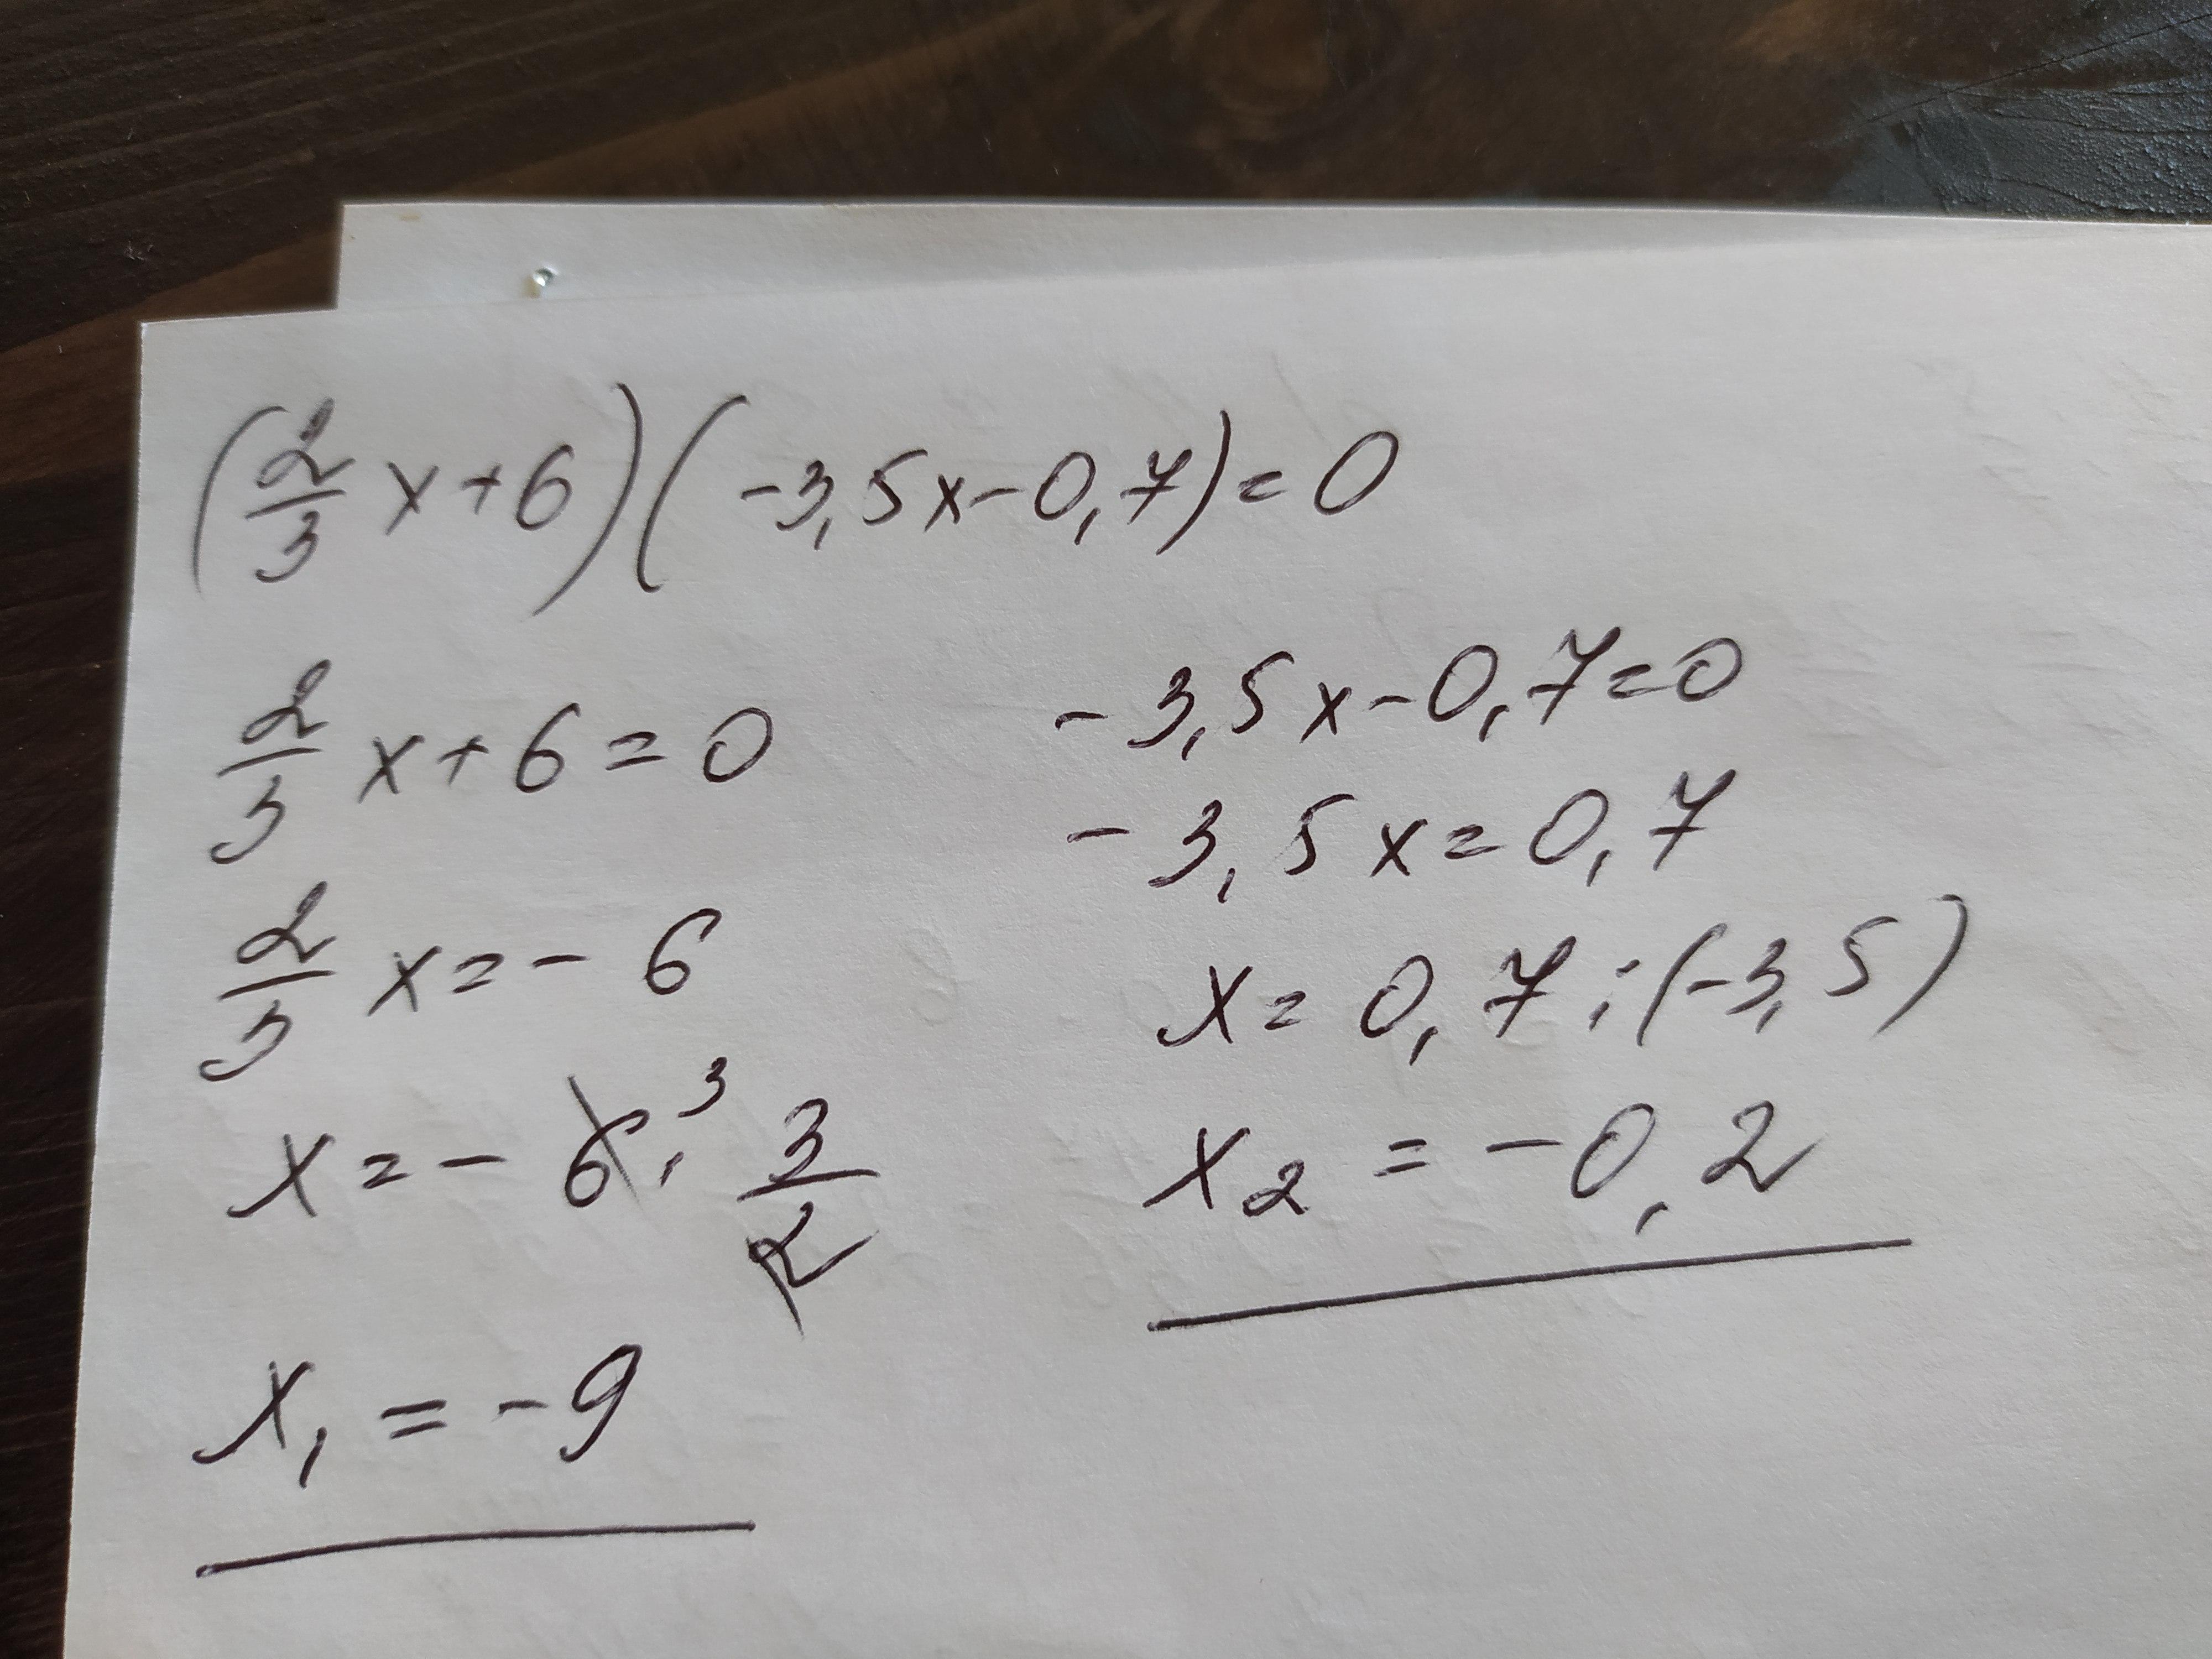 (2/3 x+6)(-3,5x-0,7)=0
2/3 x+6=0
2/3 x=-6
x=-6·³ 3/2
x₁=-9
-3,5x-0,7=0
-3,5x=0,7
x=0,7:(-3,5)
x₂=-0,2